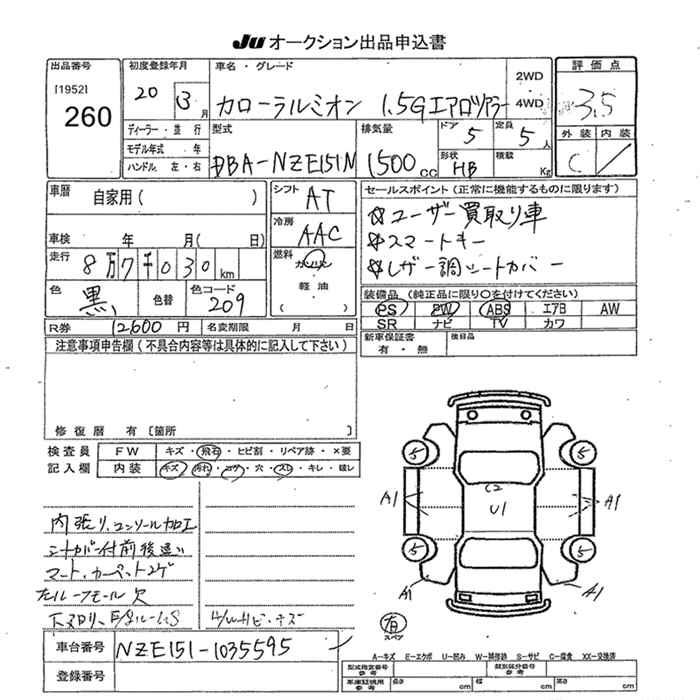 JU オークション出品申込書
出品番号 [1952] 260
初度登録年月 20 3月
車名・グレード カローラルミオン 1.5Gエアロツアラー
2WD 4WD
評価点 3.5
外装 内装
C
ディーラー・並行
モデル年式 年
ハンドル 左・右
型式 DBA-NZE151N
排気量 1500 CC
ドア 5
定員 5 人
形状 HB
積載 Kg
車歴 自家用( )
シフト AT
冷房 AAC
車検 年 月( 日)
走行 8万7千030 km
燃料 ガソリン
軽油
( )
色 黒
色替
色コード 209
R券 12600円 名変期限 月 日
セールスポイント(正常に機能するものに限ります)
☆ユーザー買取り車
☆スマートキー
☆レザー調シートカバー
装備品(純正品に限り○を付けてください)
PS PW ABS エアB AW
SR ナビ TV カワ
新車保証書 有・無
後日品
注意事項申告欄(不具合内容等は具体的に記入して下さい)
修復暦 有〔箇所
検査員記入欄
FW キズ・飛石・ヒビ割・リペア跡・×要
内装 キズ・汚れ・コゲ・穴・スレ・キレ・破レ
内張り、コンソール加工
シートカバー付前後違い
マート・カーペットコゲ
ルーフモール欠
キズ
5 5
A1 A1
C2
U1
5 5
A1 A1
有
スペア
車台番号 NZE151-1035595
登録番号
A=キズ E=エクボ U=凹み W=補修跡 S=サビ C=腐食 XX=交換済
型式指定番号 参考
類別区分番号 参考
車庫証明用 参考
長さ cm 幅 cm 高さ cm